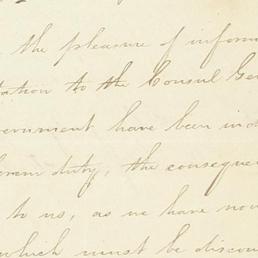 the pleasure of inform
tation to the Consul Gen
vernment have been in
duty, the conseque
to us, as we have no
which must be disco